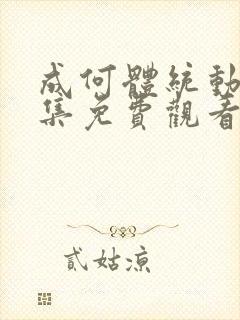 成何體統動
集免費觀看
貳姑涼